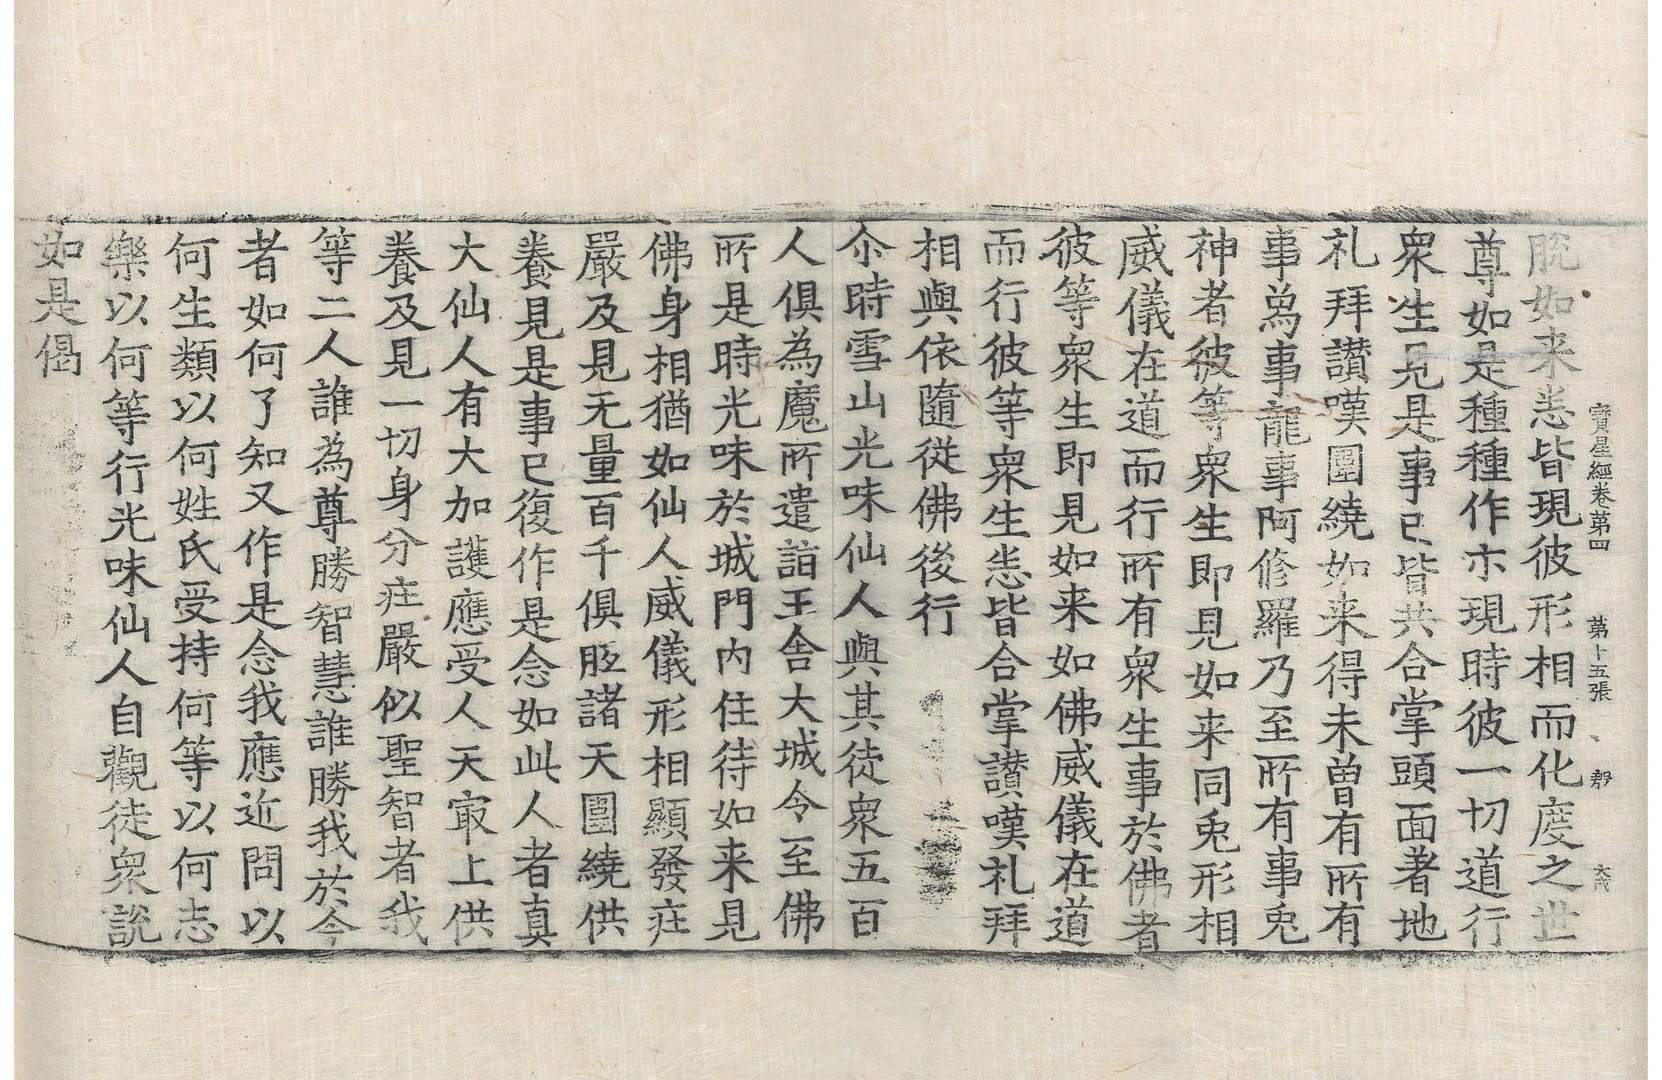 寶星經卷第四 第十五張 㲉 大成
脫如来悉皆現彼形相而化度之世
尊如是種種作亦現時彼一切道行
衆生見是事已皆共合掌頭面著地
礼拜讃嘆圍繞如来得未曽有所有
事爲事龍事阿修羅乃至所有事兎
神者彼等衆生即見如来同兎形相
威儀在道而行所有衆生事於佛者
彼等衆生即見如来如佛威儀在道
而行彼等衆生悉皆合掌讃嘆礼拜
相與依隨従佛後行
尒時雪山光味仙人與其徒衆五百
人俱為魔所遣詣王舎大城今至佛
所是時光味於城門内住待如来見
佛身相猶如仙人威儀形相顯發庄
嚴及見无量百千俱胝諸天圍繞供
養見是事已復作是念如此人者真
大仙人有大加護應受人天冣上供
養及見一切身分庄嚴似聖智者我
等二人誰為尊勝智慧誰勝我於今
者如何了知又作是念我應近問以
何生類以何姓氏受持何等以何志
樂以何等行光味仙人自觀徒衆說
如是偈